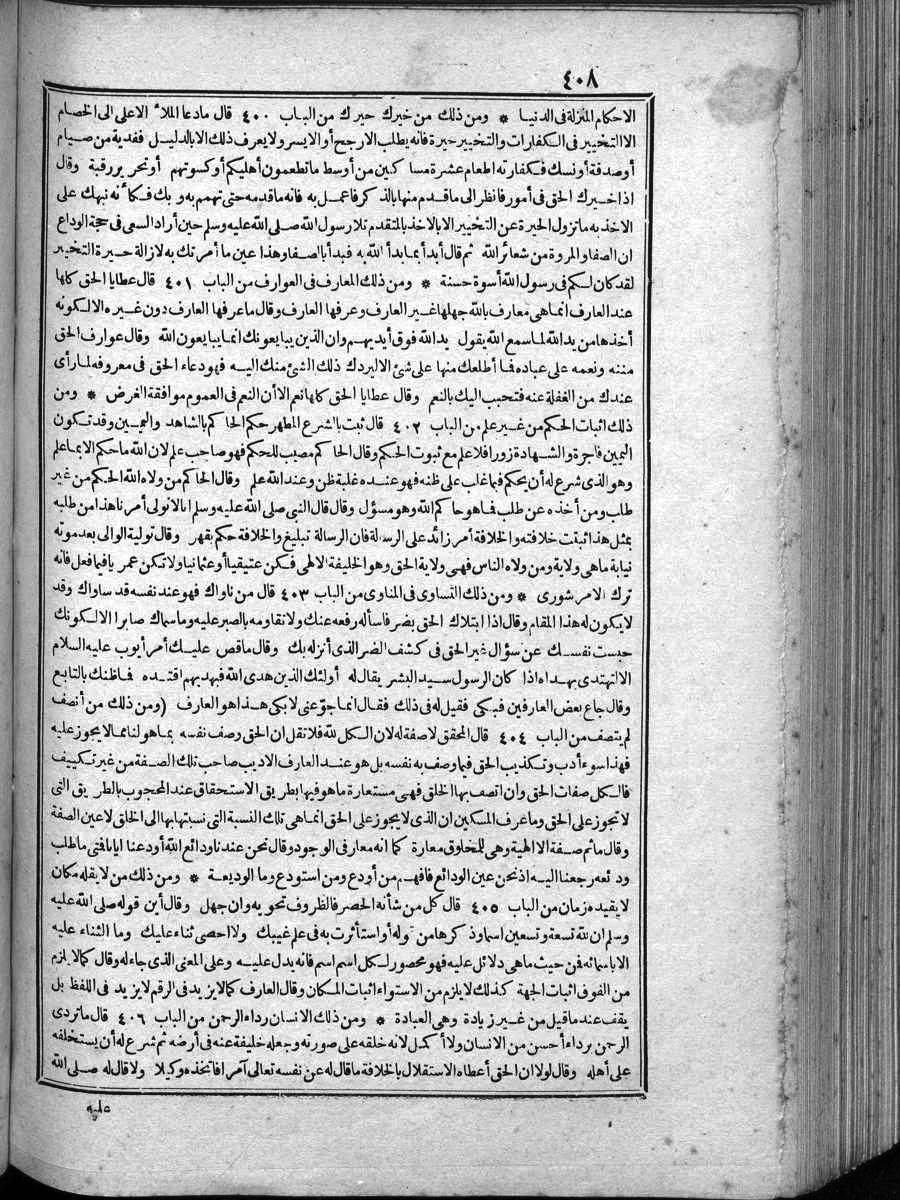 ٤٠٨
الاحكام المنزلة فى الدنيا * ومن ذلك من خيرك حيرك من الباب ٤٠٠ قال مادعا الملأ الاعلى الى الخصام
الا التخيير فى الكفارات والتخيير حيرة فانه يطلب الارجح أو الايسر ولا يعرف ذلك الا بالدليل ففدية من صيام
أو صدقة أو نسك فكفارته اطعام عشرة مساكين من أوسط ما تطعمون أهليكم أو كسوتهم أو تحرير رقبة وقال
اذا خيرك الحق فى أمور فانظر الى ما قدم منها بالذكر فاعمل به فانه ما قدمه حتى تهمم به وبك فكأنه نبهك على
الاخذ به ما تزول الحيرة عن التخيير الا بالاخذ بالمتقدم تلا رسول الله صلى الله عليه وسلم حين أراد السعى فى حجة الوداع
ان الصفا والمروة من شعائر الله ثم قال أبدأ بما بدأ الله به فبدأ بالصفا وهذا عين ما أمرتك به لازالة حيرة التخيير
لقد كان لكم فى رسول الله أسوة حسنة * ومن ذلك المعارف فى العوارف من الباب ٤٠١ قال عطايا الحق كلها
عند العارف انما هى معارف بالله جهلها غير العارف وعرفها العارف وقال ما عرفها العارف دون غيره الا لكونه
أخذها من يد الله لما سمع الله يقول يد الله فوق أيديهم وان الذين يبايعونك انما يبايعون الله وقال عوارف الحق
مننه ونعمه على عباده فما أطلعك منها على شئ الا ليردك ذلك الشئ منك اليه فهو دعاء الحق فى معروفه لما رأى
عندك من الغفلة عنه فتحبب اليك بالنعم وقال عطايا الحق كلها نعم الا أن النعم فى العموم موافقة الغرض * ومن
ذلك اثبات الحكم من غير علم من الباب ٤٠٢ قال ثبت بالشرع المطهر حكم الحاكم بالشاهد واليمين وقد تكون
اليمين فاجرة والشهادة زورا فلا علم مع ثبوت الحكم وقال الحاكم مصيب للحكم فهو صاحب علم لان الله ما حكم الا بما علم
وهو الذى شرع له أن يحكم فيما غاب على ظنه فهو عنده غلبة ظن وعند الله علم وقال الحاكم من ولاه الله الحكم من غير
طلب ومن أخذه عن طلب فما هو حاكم الله وهو مسؤل وقال قال النبى صلى الله عليه وسلم انا لا نولى أمرنا هذا من طلبه
بمثل هذا ثبتت خلافته والخلافة أمر زائد على الرسالة فان الرسالة تبليغ والخلافة حكم بقهر وقال تولية الوالى بعد موته
نيابة ما هى ولاية ومن ولاه الناس فهى ولاية الحق وهو الخليفة الالهى فكن عتيقيا أو عثمانيا ولا تكن عمريا فيما فعل فانه
ترك الامر شورى * ومن ذلك التساوى فى المناوى من الباب ٤٠٣ قال من ناواك فهو عند نفسه قد ساواك وقد
لا يكون له هذا المقام وقال اذا ابتلاك الحق بضر فاسأله رفعه عنك ولا تقاومه بالصبر عليه وما سماك صابرا الا لكونك
حبست نفسك عن سؤال غير الحق فى كشف الضر الذى أنزله بك وقال ما قص عليك أمر أيوب عليه السلام
الا لتهتدى بهداه اذا كان الرسول سيد البشر يقال له أولئك الذين هدى الله فبهديهم اقتده فما ظنك بالتابع
وقال جاع بعض العارفين فبكى فقيل له فى ذلك فقال انما جوّعنى لا بكى هذا هو العارف (ومن ذلك من أنصف
لم يتصف من الباب ٤٠٤ قال المحقق لا صفة له لان الكل لله فلا تقل ان الحق وصف نفسه بما هو لنا مما لا يجوز عليه
فهذا سوء أدب وتكذيب الحق فيما وصف به نفسه بل هو عند العارف الاديب صاحب تلك الصفة من غير تكييف
فالكل صفات الحق وان اتصف بها الخلق فهى مستعارة ما هو فيها بطريق الاستحقاق عند المحجوب بالطريق التى
لا تجوز على الحق وما عرف المسكين ان الذى لا يجوز على الحق انما هى تلك النسبة التى نسبتها بها الى الخلق لا عين الصفة
وقال ما ثم صفة الا الهية وهى للمخلوق معارة كما انه معار فى الوجود وقال نحن عندنا ودائع الله أودعنا ايانا فتى ما طلب
ودائعه رجعنا اليه اذ نحن عين الودائع فافهم من أودع ومن استودع وما الوديعة * ومن ذلك من لا يقله مكان
لا يقيده زمان من الباب ٤٠٥ قال كل من شأنه الحصر فالظروف تحويه وان جهل وقال أين قوله صلى الله عليه
وسلم ان لله تسعة وتسعين اسما وذكرها من قوله أو استأثرت به فى علم غيبك ولا احصى ثناء عليك وما الثناء عليه
الا باسمائه فمن حيث ما هى دلائل عليه فهو محصور لكل اسم اسم فانه يدل عليه وعلى المعنى الذى جاء له وقال كما لا يلزم
من الفوق اثبات الجهة كذلك لا يلزم من الاستواء اثبات المكان وقال العارف كما لا يزيد فى الرقم لا يزيد فى اللفظ بل
يقف عند ما قيل من غير زيادة وهى العبادة * ومن ذلك الانسان رداء الرحمن من الباب ٤٠٦ قال ما تردى
الرحمن برداء أحسن من الانسان ولا أكمل لانه خلقه على صورته وجعله خليفة عنه فى أرضه ثم شرع له أن يستخلفه
على أهله وقال لولا ان الحق أعطاه الاستقلال بالخلافة ما قال له عن نفسه تعالى آمرا فاتخذه وكيلا ولا قال له صلى الله
عليه